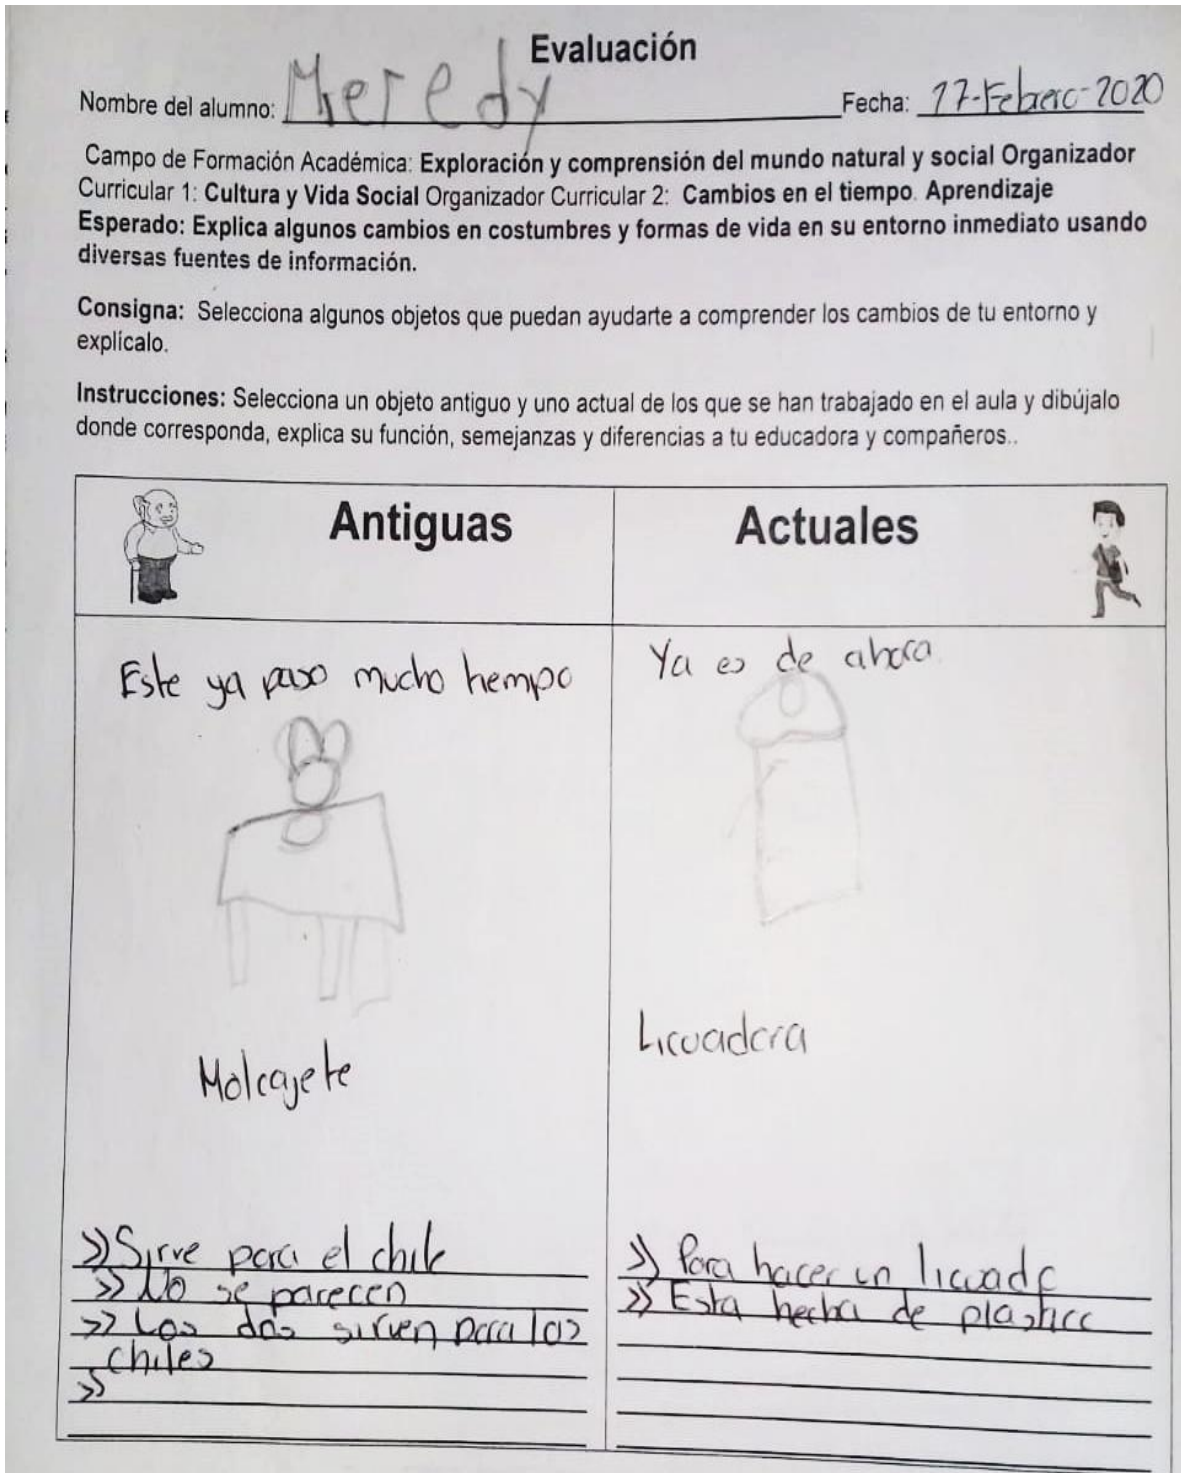 Evaluación
Nombre del alumno: Meredy Fecha: 17-Febrero-2020
Campo de Formación Académica: Exploración y comprensión del mundo natural y social Organizador
Curricular 1: Cultura y Vida Social Organizador Curricular 2: Cambios en el tiempo. Aprendizaje
Esperado: Explica algunos cambios en costumbres y formas de vida en su entorno inmediato usando
diversas fuentes de información.
Consigna: Selecciona algunos objetos que puedan ayudarte a comprender los cambios de tu entorno y
explícalo.
Instrucciones: Selecciona un objeto antiguo y uno actual de los que se han trabajado en el aula y dibújalo
donde corresponda, explica su función, semejanzas y diferencias a tu educadora y compañeros..
Antiguas
Actuales
Este ya paso mucho tiempo
Molcajete
>> Sirve para el chile
>> No se parecen
>> Los dos sirven para los
chiles
>>
Ya es de ahora
Licuadora
>> Para hacer un licuado
>> Esta hecha de plastico